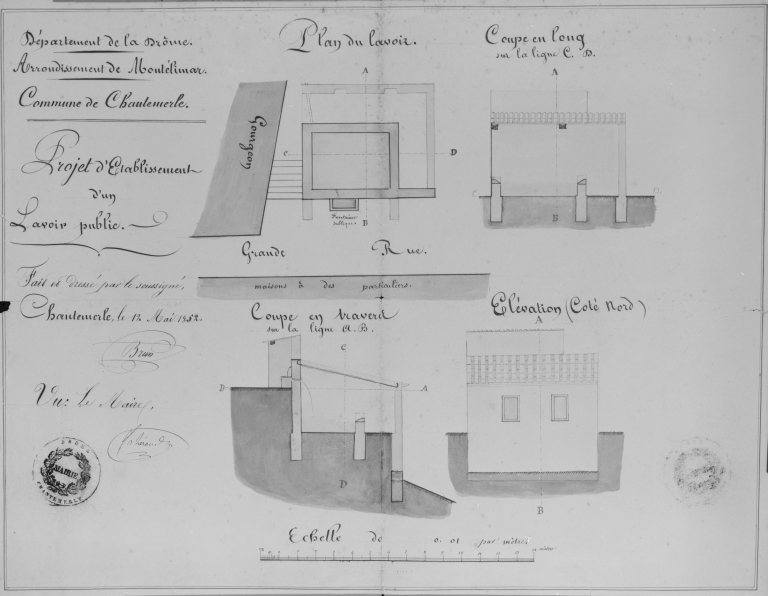 Département de la Drôme.
Arrondissement de Montélimar.
Commune de Chantemerle.
Projet d'Etablissement
d'un
Lavoir public.
Fait et dressé par le soussigné,
Chantemerle, le 12 Mai 1852.
Brun
Vu: Le Maire,
DROME
MAIRIE
CHANTEMERLE
Plan du lavoir.
A
Gourgeon
C
D
Fontaine
publique
B
Grande Rue.
maisons & des particuliers.
Coupe en long
sur la ligne C. D.
A
C
D
B
Coupe en travers
sur la ligne A. B.
C
B
A
D
Elévation (Coté Nord)
A
B
Echelle de 0.01 par mètre